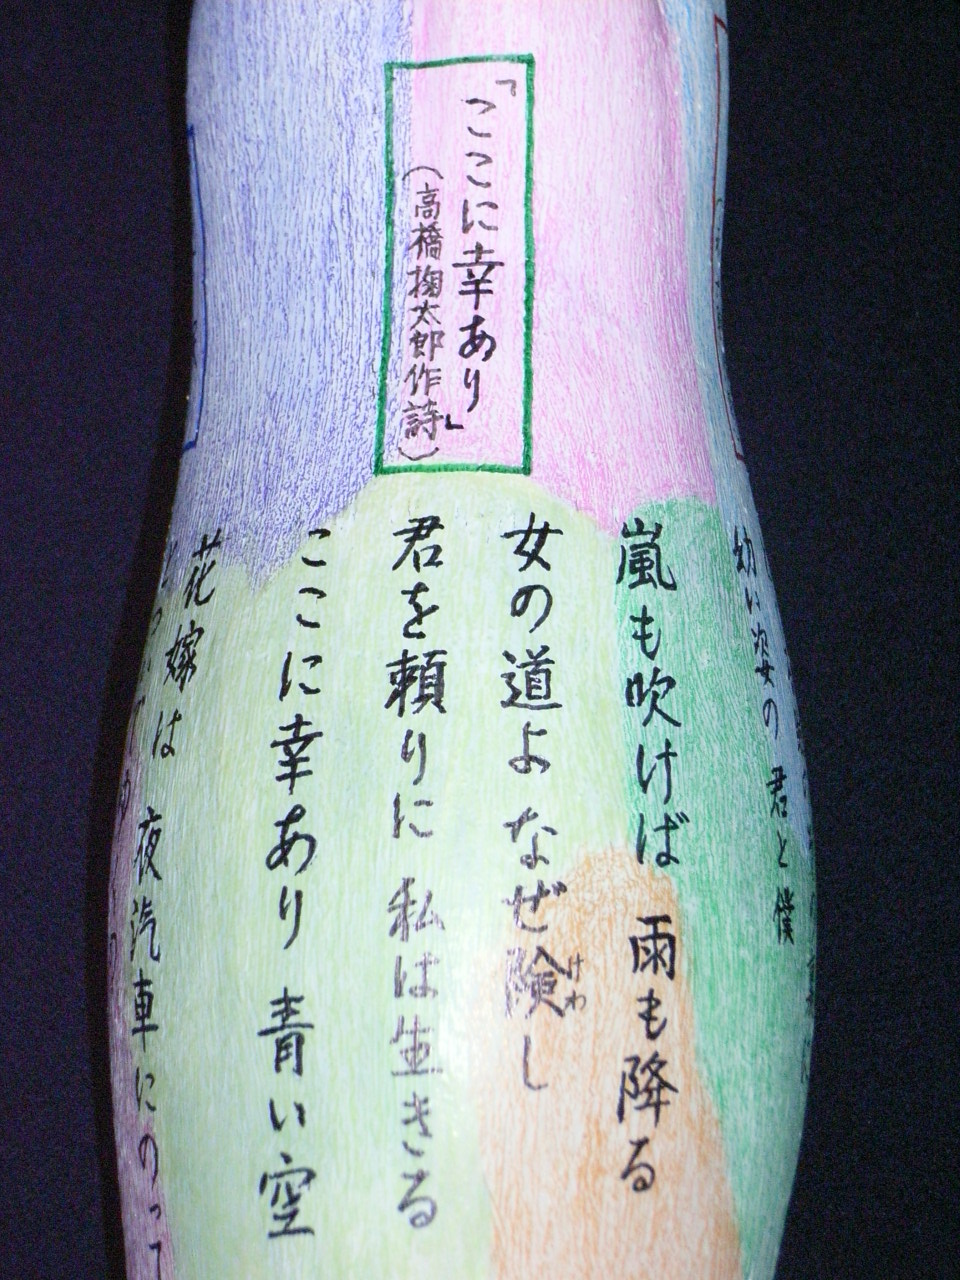 「ここに幸あり」
(高橋掬太郎作詩)
幼い姿の 君と僕
嵐も吹けば 雨も降る
女の道よ なぜ険し
けわ
君を頼りに 私は生きる
ここに幸あり 青い空
花嫁は 夜汽車にのって